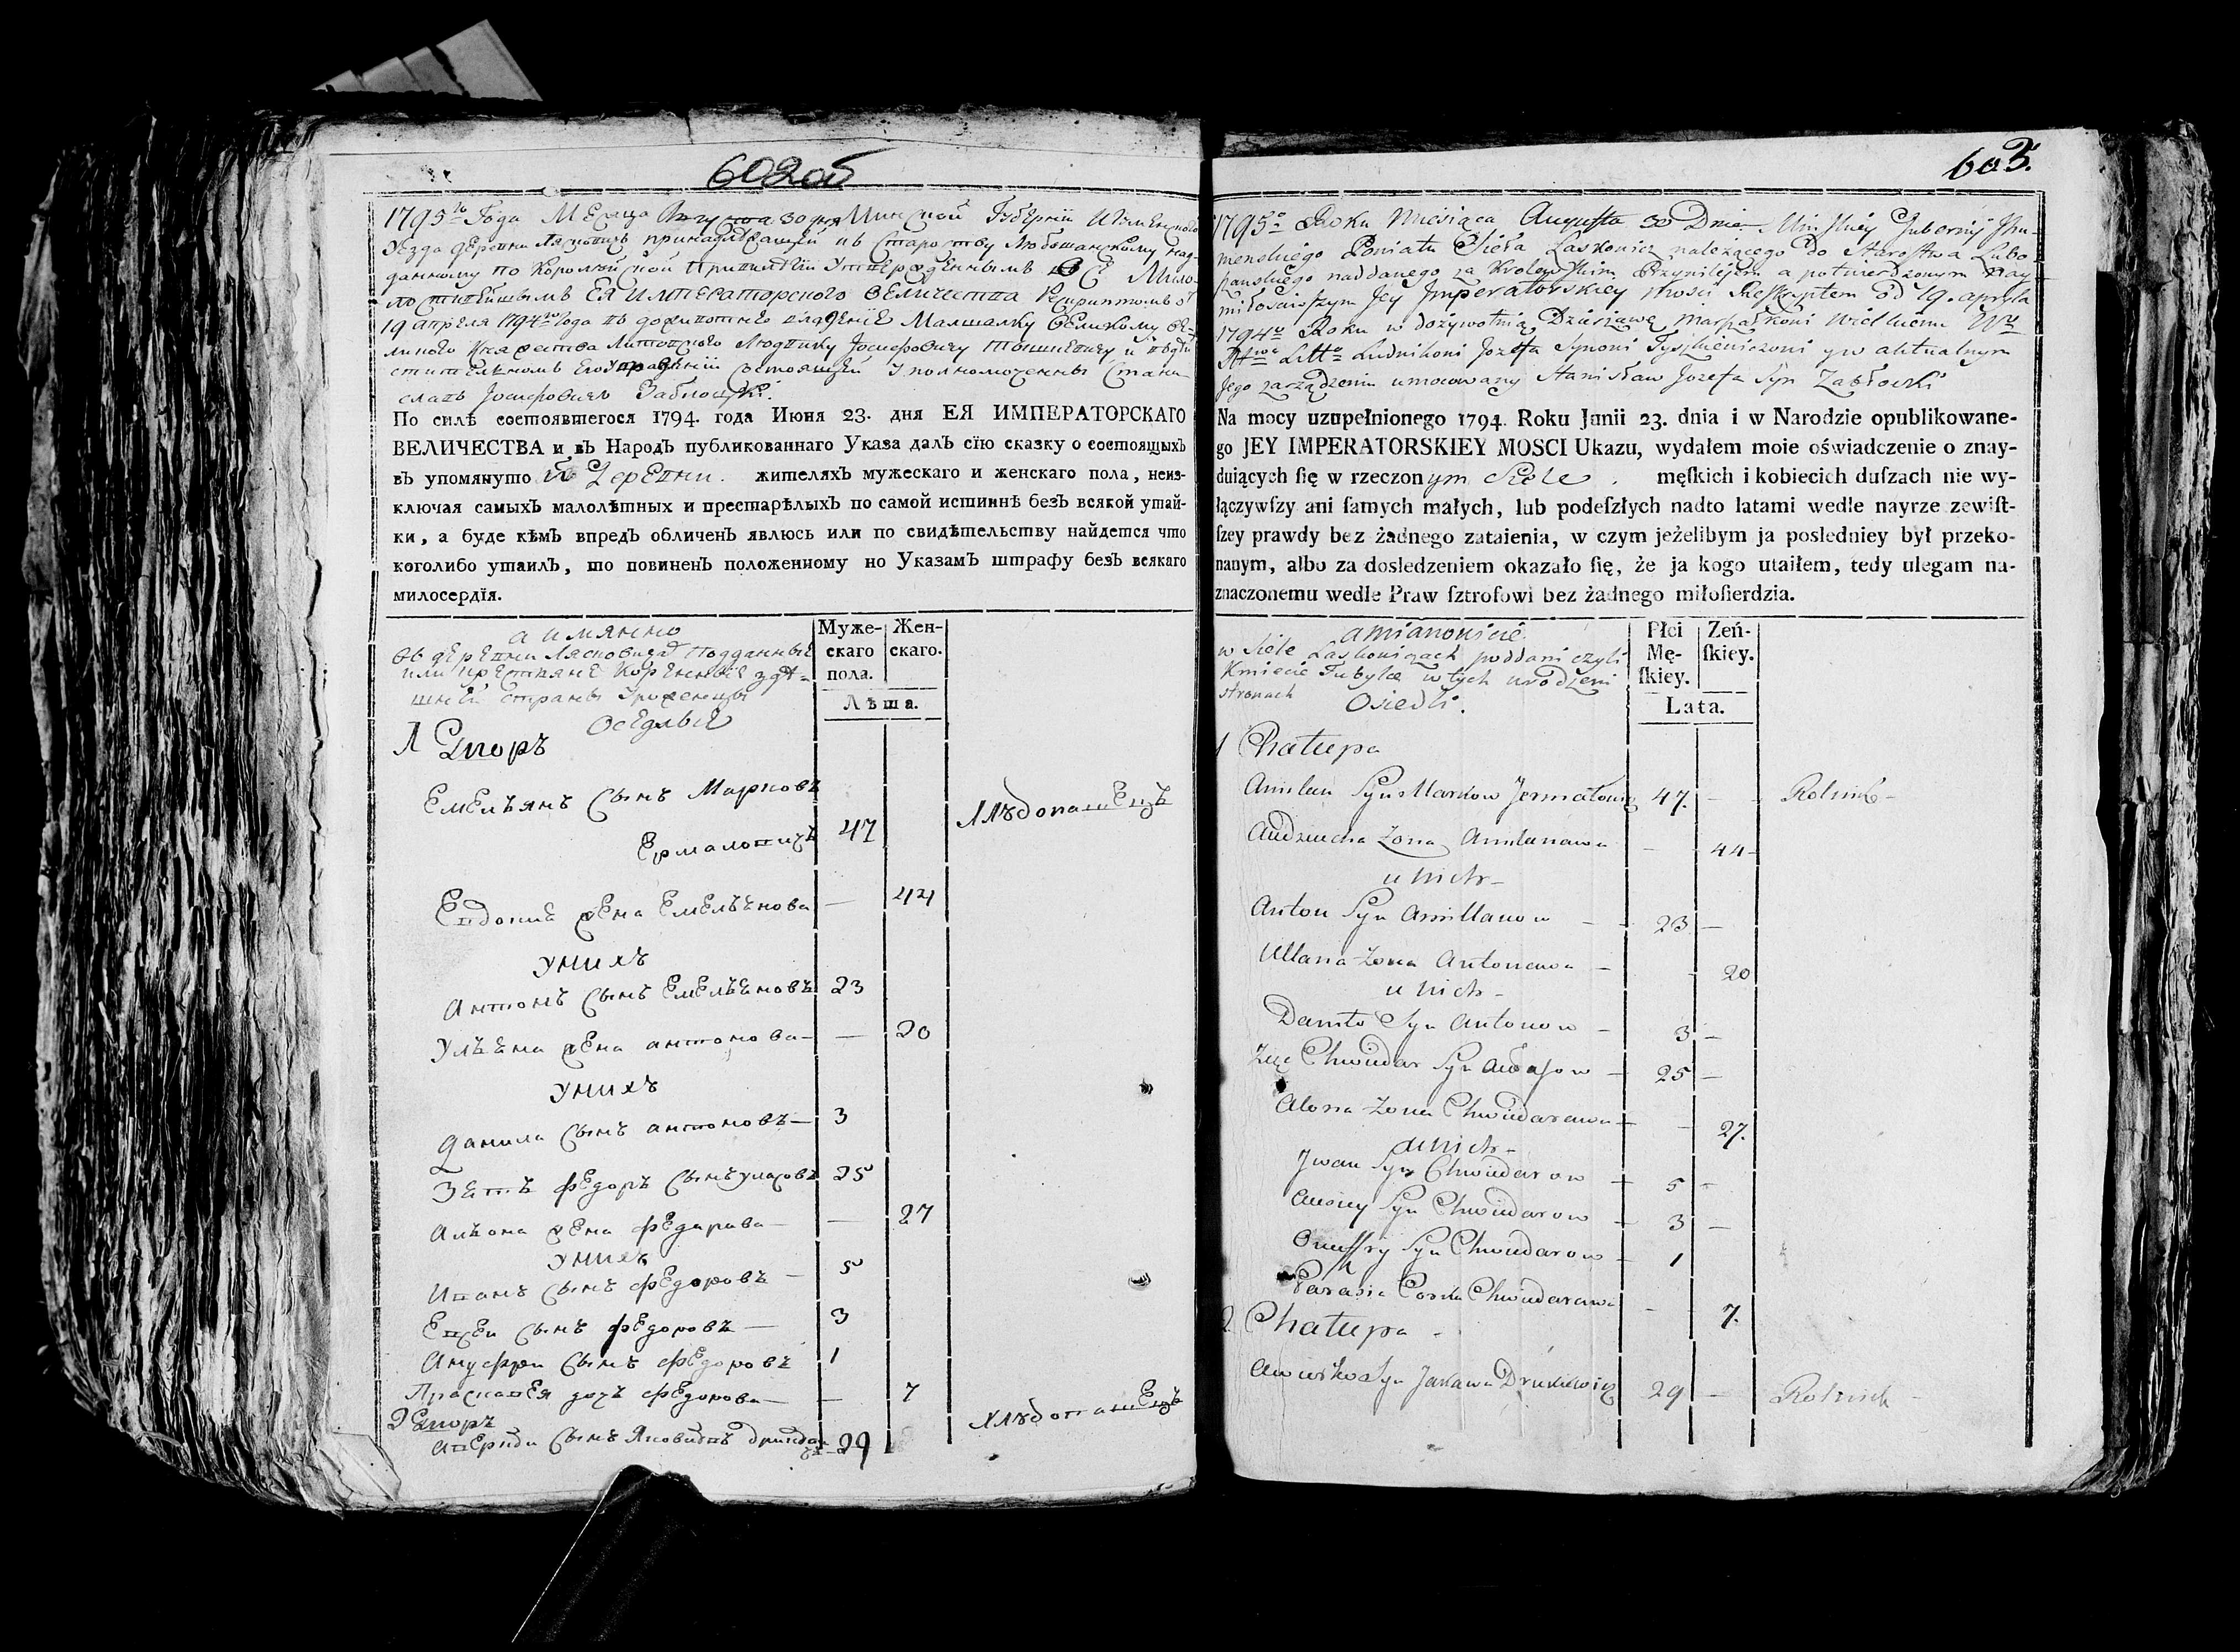 602об
1795го Года Месяца Августа 30 дня Минской Губернїи Игуменского
Уезда деревни Лясковичъ принадлежащей къ Староству Любошанскому над-
данному по Королевской Привилегїи Утвержденнымъ ВСЕ Мило-
ЕЯ ИМПЕРАТОРСКОГО ВЕЛИЧЕСТВА Рескриптомъ от
19 апреля 1794го года въ доживотнее владенїе Маршалку Великому Ве-
ликого Княжества Литовского Людвику Іосифовичу Тышкевичу и въ
Его Управленїи состоящей Уполномоченны Стани-
славъ Іосифовичъ Заблоцкї.
По силѣ состоявшегося 1794. года Июня 23. дня ЕЯ ИМПЕРАТОРСКАГО
ВЕЛИЧЕСТВА и въ Народъ публикованнаго Указа далъ сїю сказку о состоящыхъ
въ упомянуто й Деревни. жителяхъ мужескаго и женскаго пола, неиз-
ключая самыхъ малолѣтных и престарѣлыхъ по самой истиннѣ безъ всякой утай-
ки, а буде кѣмъ впредъ обличенъ явлюсь или по свидѣтельству найдется что
коголибо утаилъ, то повиненъ положенному по Указамъ штрафу безъ всякаго
милосердїя.
а имянно
въ деревни Лясковичах Подданные
или крестяне Коренные здѣ-
шней страны Уроженцы
Оседлые
Муже-
скаго
пола.
Жен-
скаго.
Лѣта.
1 Дворъ
Емельянъ сынъ Марковъ
Ермаловичъ 47 хлѣбопашецъ
Евдокия жена Емельянова — 44
у них
Антонъ сынъ Емельяновъ 23
Ульяна жена антонова — — 20
у них
Данила сынъ антоновъ — 3
Зять федоръ сынъ 25
Алѣона жена федорова — — 27
у них
Иванъ сынъ федоровъ — 5
Евсеи сынъ федоровъ — 3
Ануфри сынъ федоровъ 1
Праскавея дочь федорова — — 7
2 Дворъ
сынъ Яковлевъ 29 хлѣбопашецъ
603.
1795o Roku Miesiąca Augusta 30 Dnia Minskiey Gubernij Ihu-
menskiego Powiatu Sieła Laskowicz należącego do Starostwa Lubo
szanskiego naddanego za Krolewskim Przywilejem a potwierdzonym Nay
miłosciwszym Jey Imperatorskiey Mosci Reskryptem od 19. apryla
1794o Roku w dożywotnią Dzierżawę Marszałkowi Wielkiemu
Litto Ludwikowi Jozefa Synowi Tyszkiewiczowi y w aktualnym
Jego zarządzeniu umocowany Stanisław Jozefa Syn Zabłocki
Na mocy uzupełnionego 1794. Roku Junii 23. dnia i w Narodzie opublikowane-
go JEY IMPERATORSKIEY MOSCI Ukazu, wydałem moie oświadczenie o znay-
duiących ſię w rzeczonym Siele . męſkich i kobiecich duſzach nie wy-
łączywſzy ani ſamych małych, lub podeſzłych nadto latami wedle nayrze zewiſt-
ſzey prawdy bez żadnego zataienia, w czym jeżelibym ja posledniey był przeko-
nanym, albo za dosledzeniem okazało ſię, że ja kogo utaiłem, tedy ulegam na-
znaczonemu wedle Praw ſztrofowi bez żadnego miłoſierdzia.
amianowicie
w Siele Laskowiczach poddani czyli
Kmiecie Tubylce w tych urodzeni
stronach Osiedli.
Płci
Mę-
ſkiey.
Zeń-
ſkiey.
Lata.
1 Chałupa
Amilan Syn Markow Jermałowicz 47. — Rolnik —
Audziucha Zona Amilanawa — 44 —
u nich —
Anton Syn Amillanow — 23 —
Ullana Zona Antonowa — 20
u nich —
Daniło Syn Antonow — 3 —
Zięć Chwiedar Syn — 25 —
Alona Zona Chwiedarowa — — 27.
u nich —
Jwan Syn Chwiedarow — 5 —
Syn Chwiedarow — 3 —
Onuffry Syn Chwiedarow — 1
Parasia Corka Chwiedarowa — 7.
2 Chałupa —
Syn 29 — Rolnick —